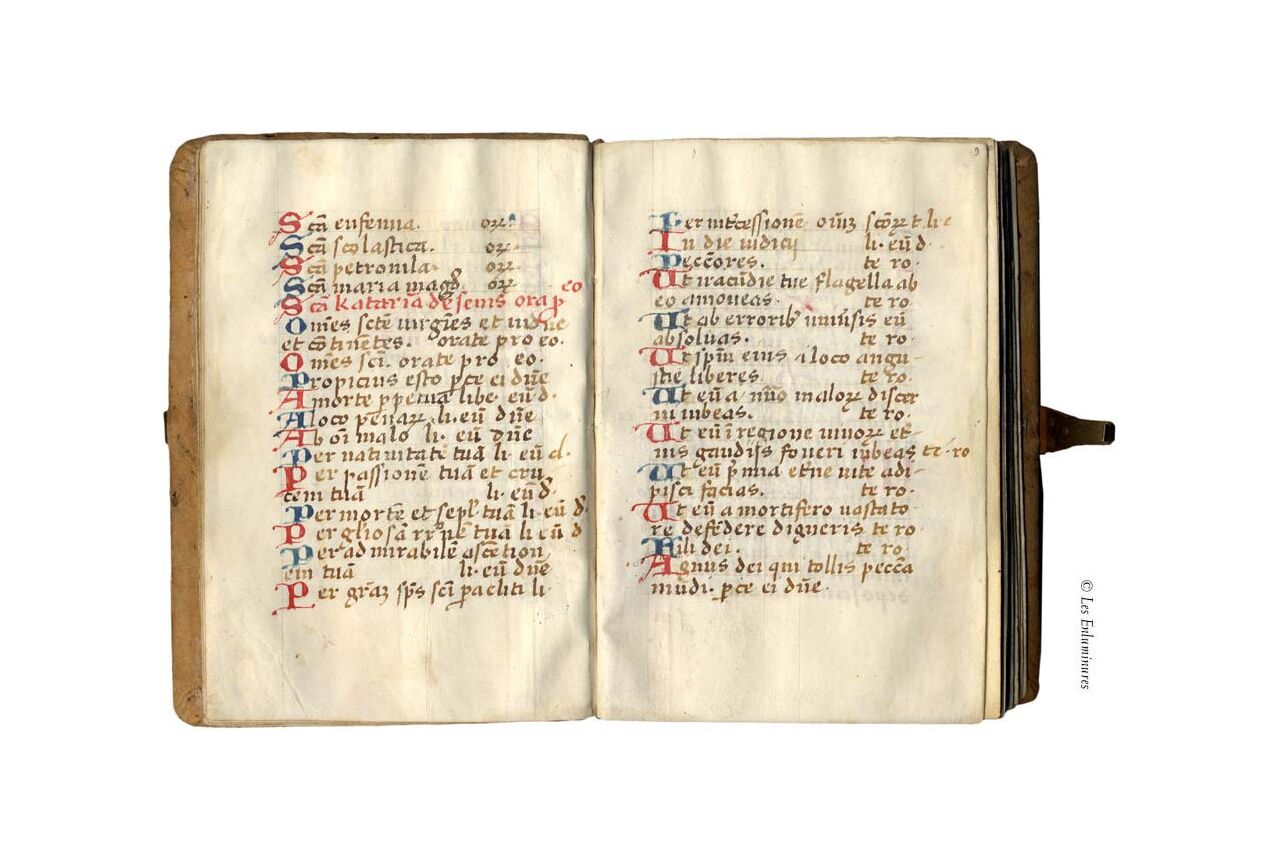 Scā eufemia. orꝝ
Scā scolastica. orꝝ.
Scā petronila. orꝝ.
Scā maria magd. orꝝ eo
Scā katarīa de senis ora ꝑ
Om̄es scte uirgīes et uidue
et cōtinentes. orate pro eo.
Om̄es sci. orate pro eo.
Propicius esto ꝑce ei dn̄e
A morte ꝑpetua libe. eū d.
A loco penarꝝ li. eū dn̄e
Ab oī malo li. eū dn̄e
Per natiuitatē tuā li eū d.
Per passionē tuā et cru
cem tuā li. eū d.
Per mortē et sepl. tuā li eū d.
Per gl̄iosā tuā li eū d
Per admirabilē ascētion
em tuā li. eū dn̄e
Per grāꝫ sp̄s sci ꝑacliti li
9
Per intēcessionē oīuꝫ scōrꝝ t li e
In die iudicij li. eū d.
Peccōres. te ro.
Ut iracūdie tue flagella ab
eo amoueas. te ro.
Ut ab erroribꝰ uniūsis eū
absoluas. te ro.
Ut sp̄m eius a loco angu-
stie liberes. te ro.
Ut eū a malorꝝ discer
ni iubeas. te ro.
Ut eū ī regione uiuorꝝ et
nis gaudijs foueri iubeas te ro
Ut eū p̄mia et̄ne uite adi-
pisci facias. te ro.
Ut eū a mortifero uastato-
re defēdere digneris te ro.
Fili dei. te ro
Agnus dei qui tollis peccā
mūdi. ꝑce ei dn̄e.
© Les Enluminures